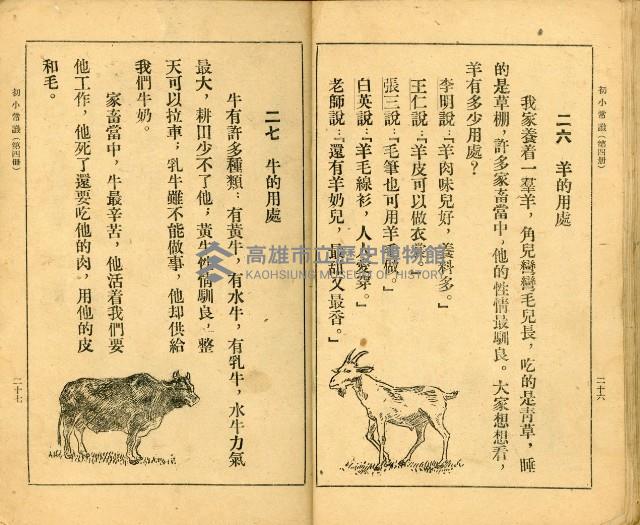 初小常識（第四册）
二六　羊的用處
我家養着一羣羊，角兒彎彎毛兒長，吃的是青草，睡
的是草棚，許多家畜當中，他的性情最馴良。大家想想看，
羊有多少用處？
李明說：『羊肉味兒好，養料多。』
王仁說：『羊皮可以做衣
張三說：『毛筆也可用羊
做。』
白英說：『羊毛線衫，人人
穿。』
老師說：『還有羊奶兒，最
又最香。』
二十六
初小常識（第四册）
二七　牛的用處
牛有許多種類：有黃牛，有水牛，有乳牛，水牛力氣
最大，耕田少不了他；黃牛性情馴良，整
天可以拉車；乳牛雖不能做事，他却供給
我們牛奶。
家畜當中，牛最辛苦，他活着我們要
他工作，他死了還要吃他的肉，用他的皮
和毛。
二十七
高雄市立歷史博物館
KAOHSIUNG MUSEUM OF HISTORY